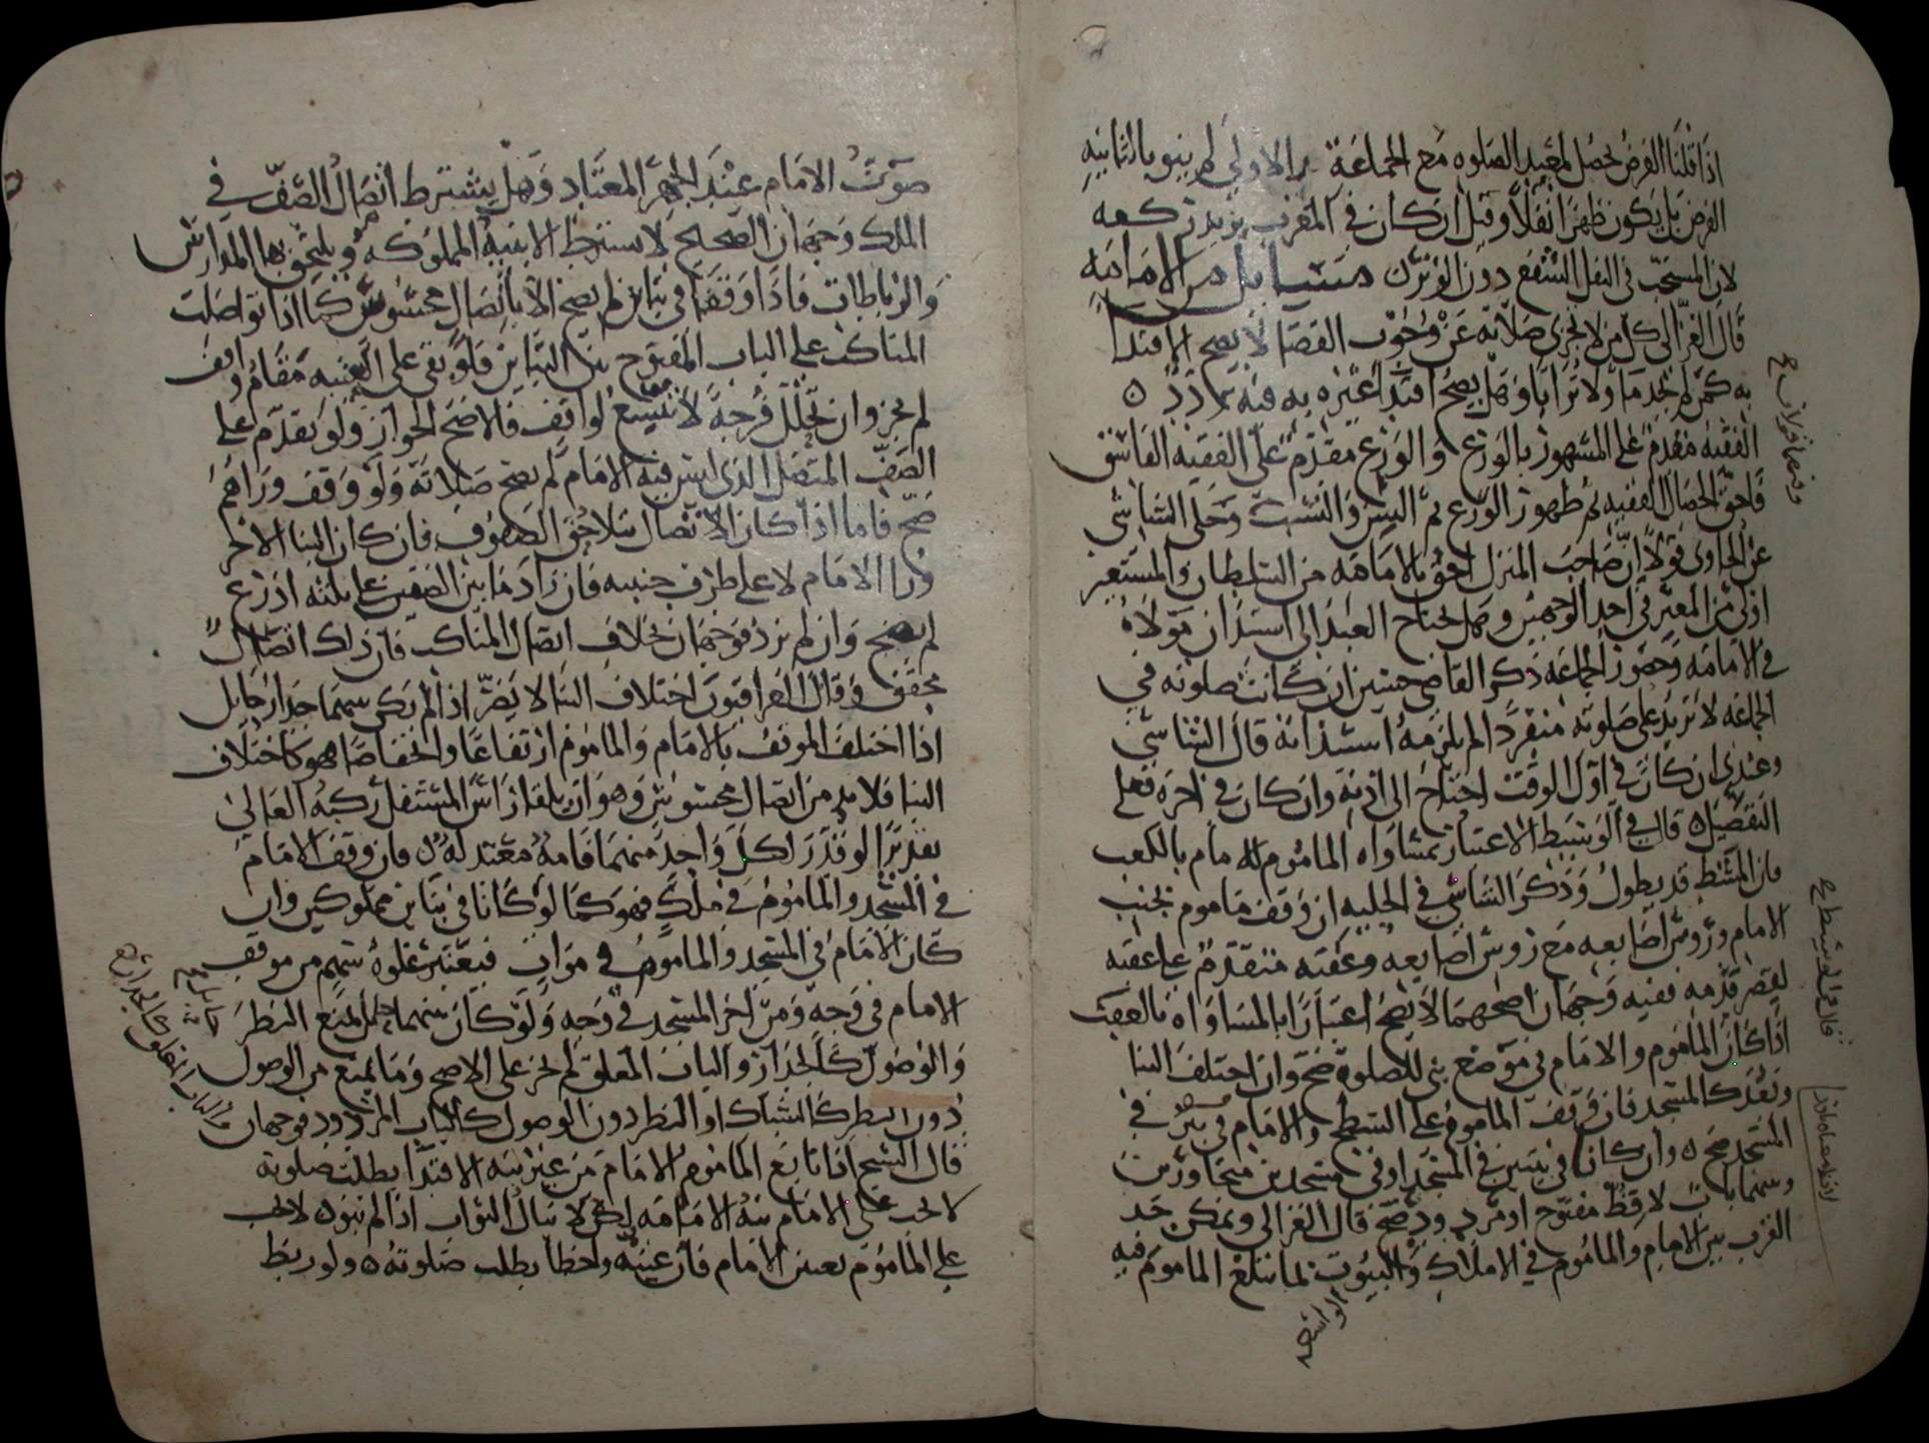 اذا قلنا الفرض يحصل لمعيد الصلوه مع الجماعة بالاولى لم ينو بالثانيه
الفرض بل يكون ظهرا نفلا وقيل ان كان في المغرب يزيد ركعه
لان المستحب في النفل الشفع دون الوتر ه مسايل من الامامه
قال الغزالى كل من لا تجزى صلاته عن وجوب القضا لا يصح الاقتدا
به كمن لم يجد ما ولا ترابا وهل يصح اقتدا غيره به فيه
الفقيه مقدم على المشهور بالورع والورع مقدم على الفقيه الفاسق
فاحق الخصال الفقه ثم ظهور الورع ثم السن والنسب وحكى الشاشى
عن الحاوى قولا ان صاحب المنزل احق بالامامه من السلطان والمستعير
اولى من المعير في احد الوجهين وهل يحتاج العبد الى استئذان مولاه
في الامامه وحضور الجماعه ذكر القاضى حسين ان كانت صلوته في
الجماعه لا تزيد على صلوته منفردا لم يلزمه استئذانه قال الشاشى
وعندى ان كان في اول الوقت احتاج الى اذنه وان كان في اخره فعلى
التفصيل ه قال في الوسيط الاعتبار بمساواه الماموم للامام بالكعب
فان المشط قد يطول وذكر الشاشى في الحليه ان وقف ماموم بجنب
الامام وروس اصابعه مع روس اصابعه وعقبه متقدم على عقبه
لقصر قدمه ففيه وجهان اصحهما لا يصح اعتبارا بالمساواه بالعقب
اذا كان الماموم والامام في موضع بنى للصلوة صح وان اختلف البنا
وبعد كالمسجد فان وقف الماموم على السطح والامام في بير في
المسجد صح ه وان كانا في بيتين في المسجد او في مسجدين متجاورين
وبينهما باب لاقط مفتوح او مردود صح قال الغزالى ويمكن حد
القرب بين الامام والماموم في الاملاك والبيوت بما يبلغ الماموم فيه
الواسعه
وفيهما قولان ح
قال في الوسيط ح
صوت الامام عند الجهر المعتاد وهل يشترط اتصال الصف في
الملك وجهان الصحيح لا يشترط الابنية المملوكه ويلتحق بها المدارس
والرباطات فاذا وقفا في بناين لم يصح الا باتصال محسوس كما اذا تواصلت
المناكب على الباب المفتوح بين البناين فلو بقى على العتبه مقام واقف
لم يجز وان تخلل فرجة لا تتسع لواقف فالاصح الجواز ولو تقدم على
الصف المتصل الذى ليس فيه الامام لم يصح صلاته ولو وقف وراهم
صح فاما اذا كان الاتصال بتلاحق الصفوف فان كان البنا الاخر
ورا الامام لا على طرف جنبيه فان زاد ما بين الصفين على ثلثه اذرع
لم يصح وان لم يزد فوجهان بخلاف اتصال المناكب فان ذلك اتصال
محقق وقال العراقيون اختلاف البنا لا يضر اذا لم يكن بينهما جدار حايل
اذا اختلف الموقف بالامام والماموم ارتفاعا وانخفاضا فهو كاختلاف
البنا فلا بد من اتصال محسوس وهو ان يلقا راس المستفل ركبه العالى
تقديرا لو قدر لكل واحد منهما قامة معتدله ه فان وقف الامام
في المسجد والماموم في ملك فهو كما لو كانا في بناين مملوكين وان
كان الامام في المسجد والماموم في موات فيعتبر غلوه سهم من موقف
الامام في وجه ومن اخر المسجد في وجه ولو كان بينهما حايل يمنع النظر
والوصول كالجدار والباب المغلق لم يجز على الاصح وما يمنع من الوصول
دون النظر كالشباك او النظر دون الوصول كالباب المردود فوجهان
قال الشيخ اذا تابع الماموم الامام من غير نيه الاقتدا بطلت صلوته
لا يجب على الامام نية الامامه لكن لا ينال الثواب اذا لم ينو ه لا يجب
على الماموم تعيين الامام فان عينه واخطا بطلت صلوته ه ولو ربط